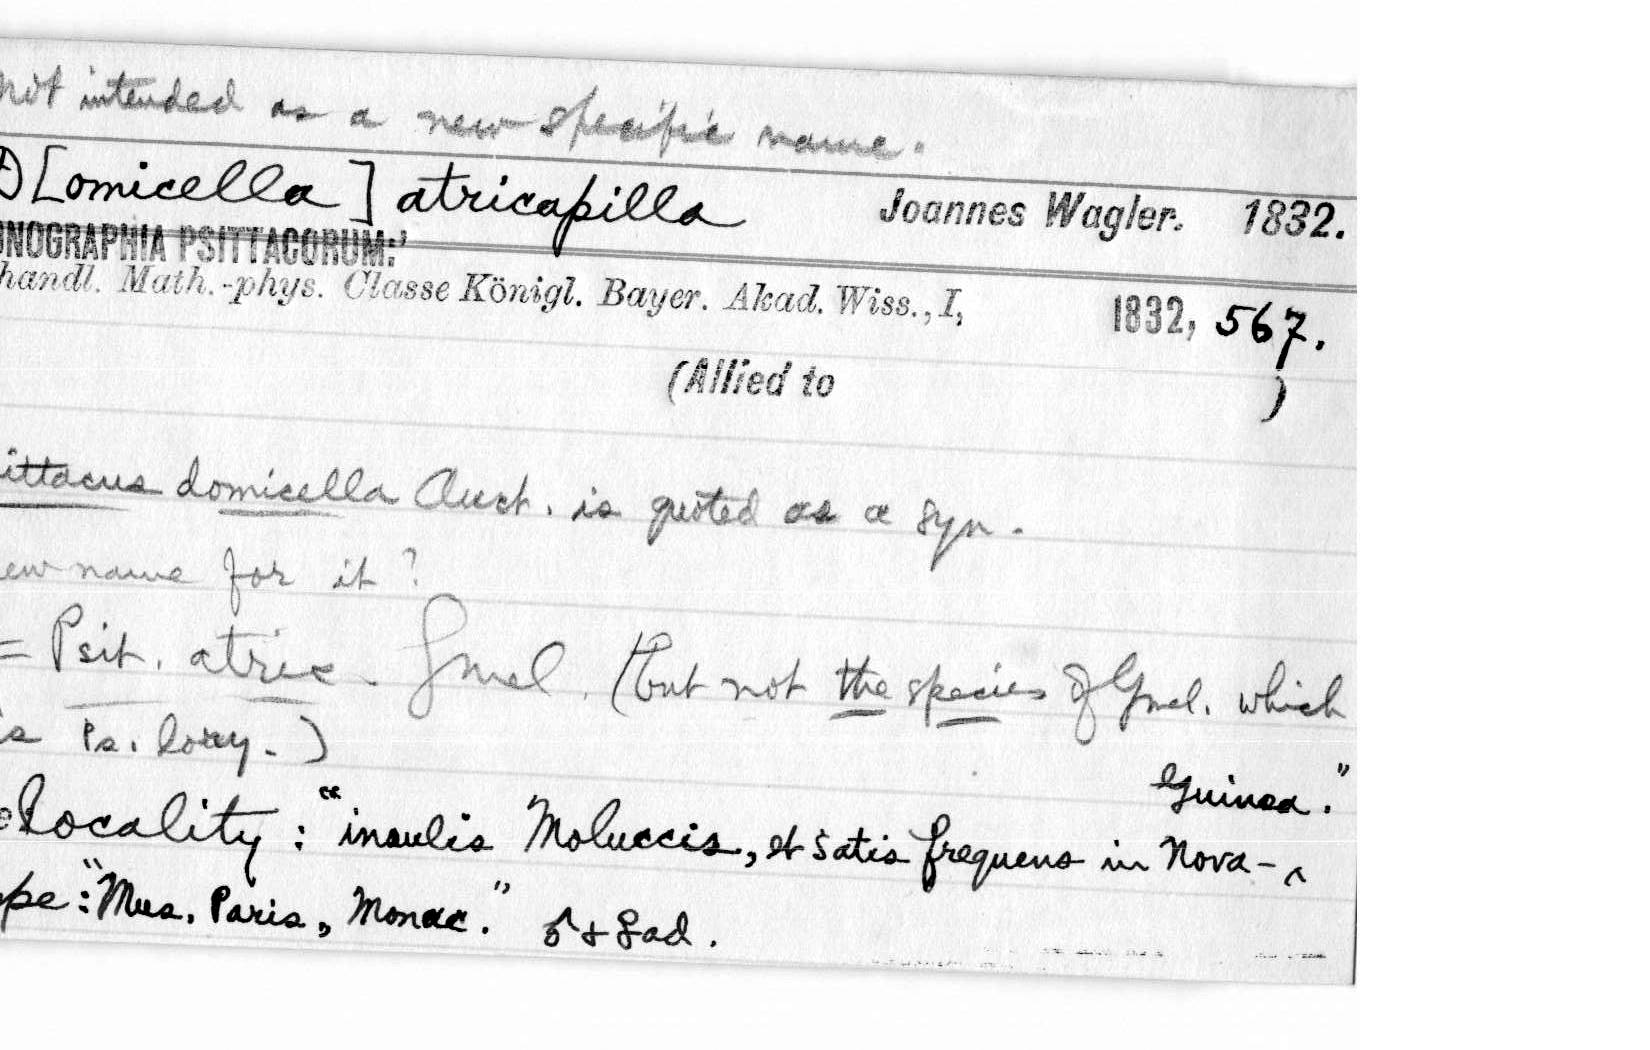 not intended as a new specific name.
D[omicella] atricapilla Joannes Wagler. 1832.
ONOGRAPHIA PSITTACORUM:'
handl. Math.-phys. Classe Königl. Bayer. Akad. Wiss., I, 1832, 567.
(Allied to )
ittacus domicella Auct. is quoted as a syn.
ew name for it?
= Psit. atric. Gmel. (but not the species of Gmel. which
is Ps. lory.)
Guinea."
e locality: "insulis Moluccis, et satis frequens in Nova-^
ype: "Mus. Paris., Monac." ♂ + ♀ ad.